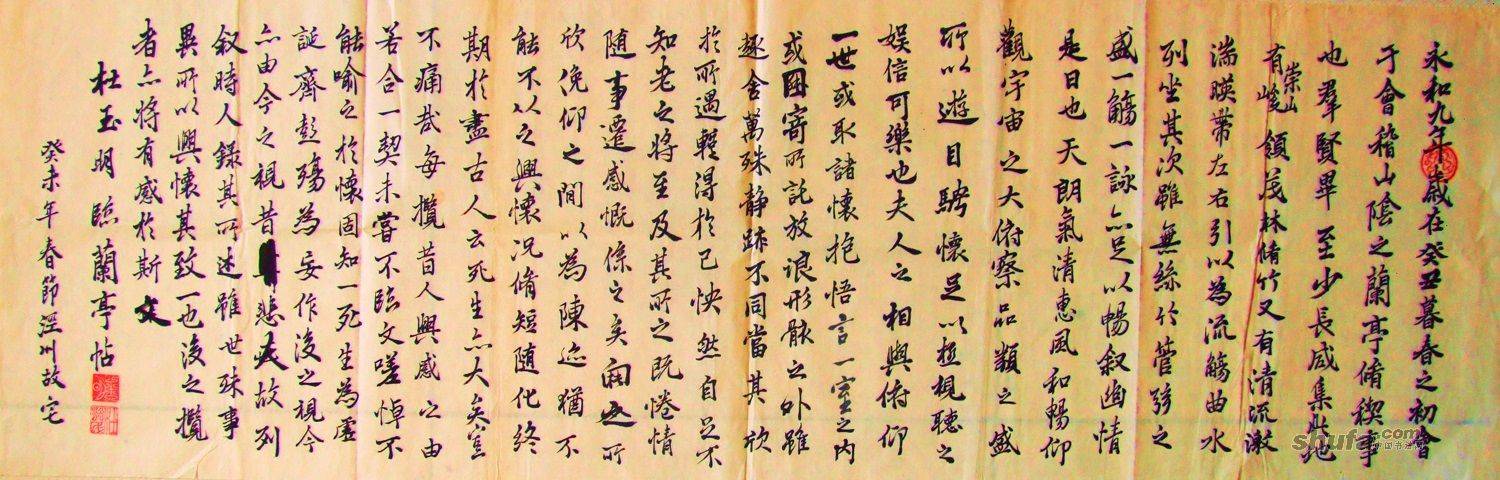 永和九年歲在癸丑暮春之初會
于會稽山陰之蘭亭脩稧事
也羣賢畢至少長咸集此地
有崇山峻領茂林脩竹又有清流激
湍暎帶左右引以為流觴曲水
列坐其次雖無絲竹管弦之
盛一觴一詠亦足以暢叙幽情
是日也天朗氣清惠風和暢仰
觀宇宙之大俯察品類之盛
所以遊目騁懷足以極視聽之
娛信可樂也夫人之相與俯仰
一世或取諸懷抱悟言一室之內
或因寄所託放浪形骸之外雖
趣舍萬殊靜躁不同當其欣
於所遇輕得於己怏然自足不
知老之將至及其所之既惓情
随事遷感慨係之矣向之所
欣俛仰之間以為陳迹猶不
能不以之興懷況脩短随化終
期於盡古人云死生亦大矣豈
不痛哉每攬昔人興感之由
若合一契未嘗不臨文嗟悼不
能喻之於懷固知一死生為虛
誕齊彭殤為妄作後之視今
亦由今之視昔悲夫故列
叙時人錄其所述雖世殊事
異所以興懷其致一也後之攬
者亦將有感於斯文
杜玉明臨蘭亭帖
癸未年春節涇川故宅
shufa.com